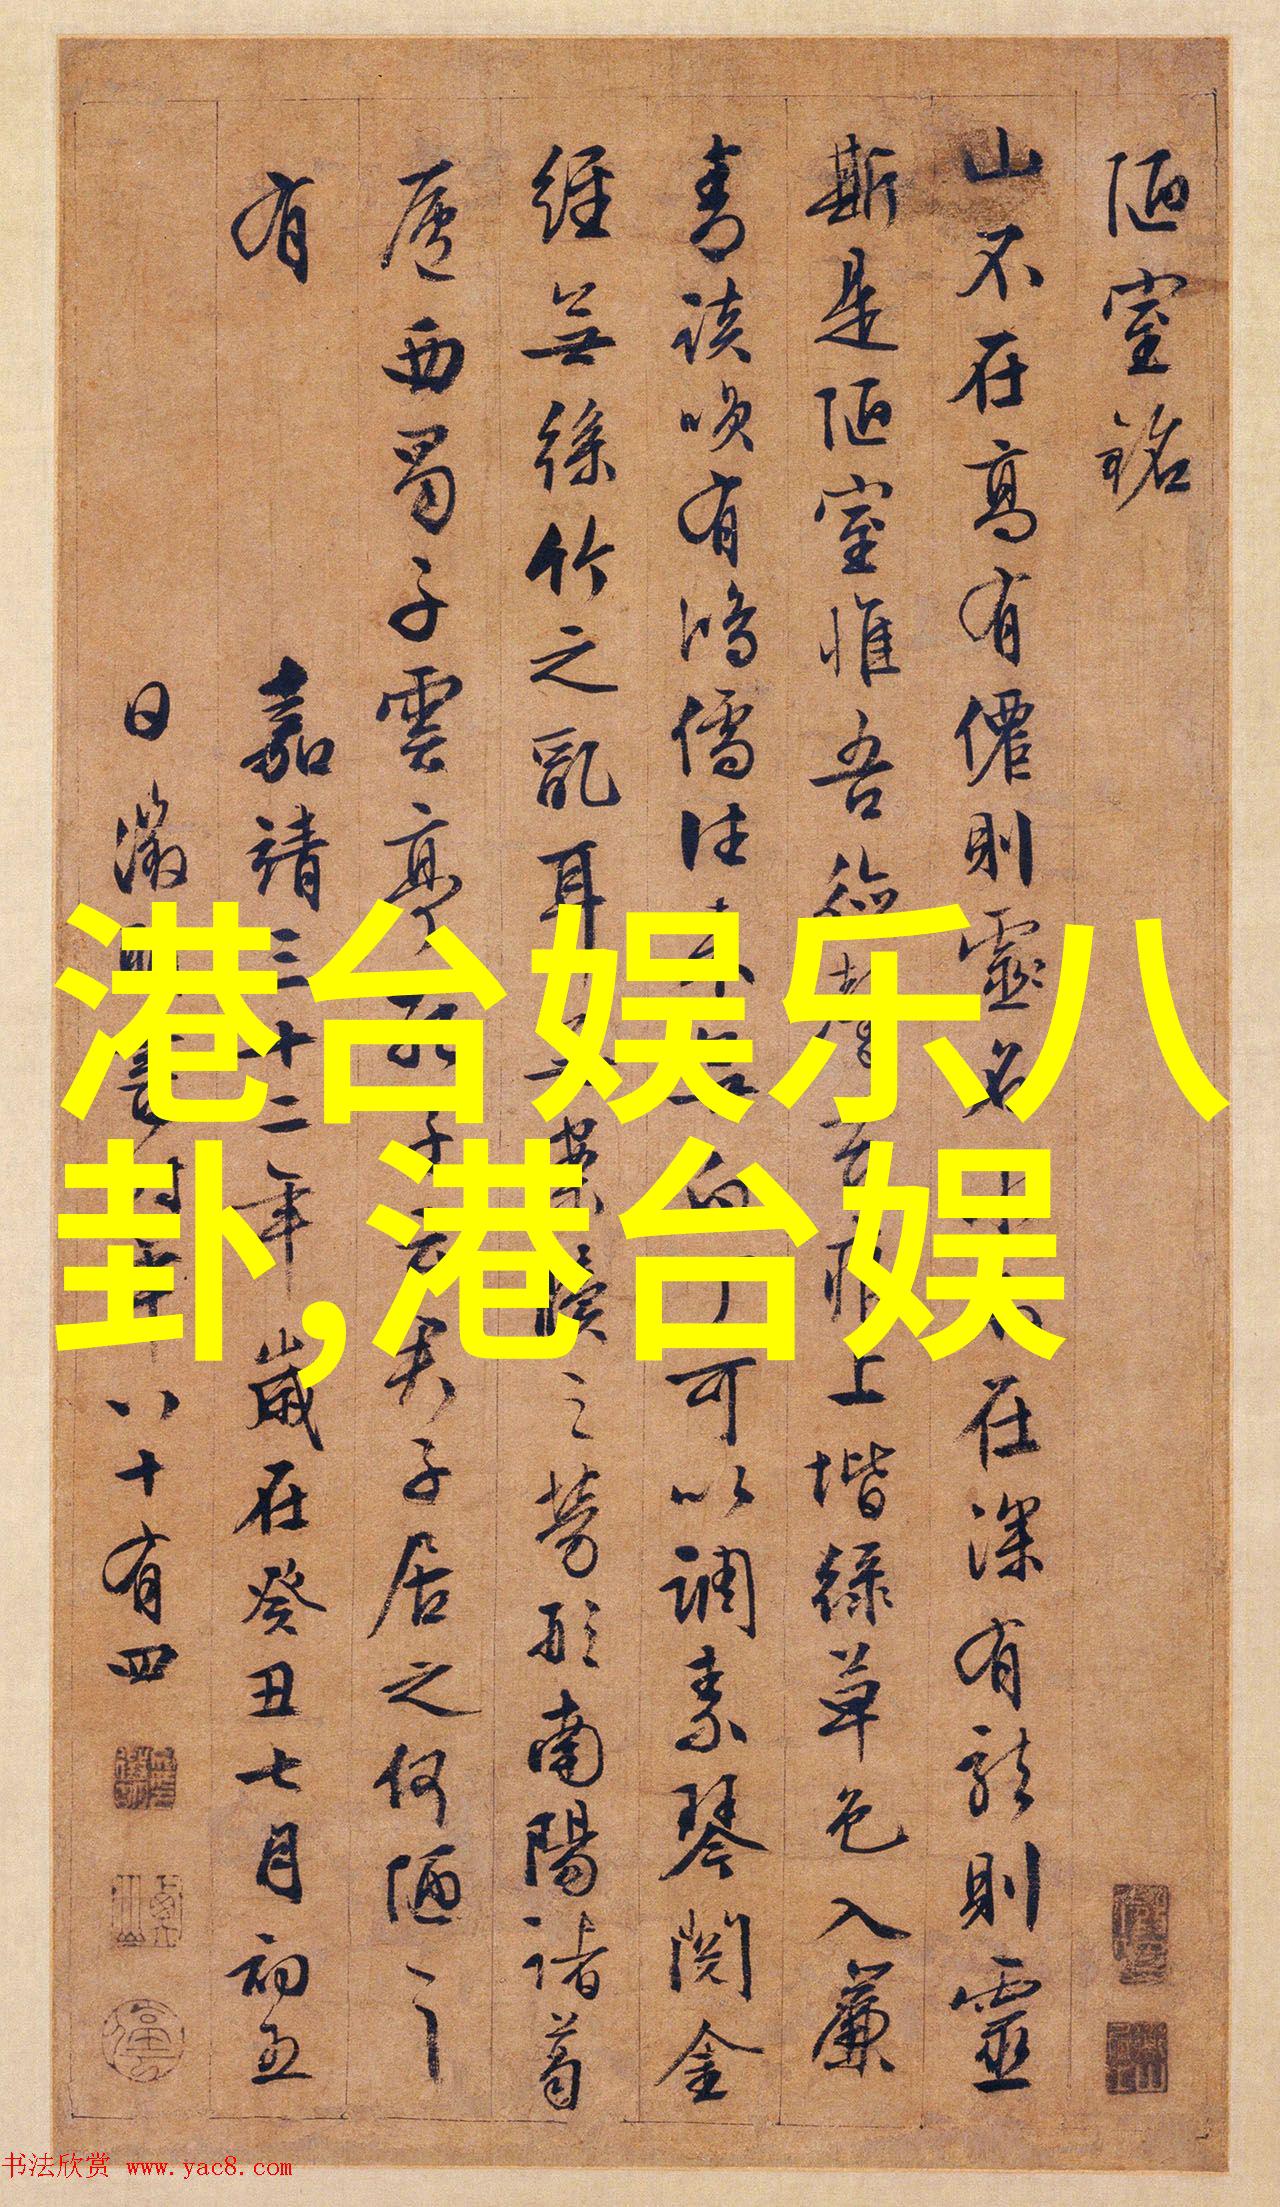 陋室銘
山不在高有僊則靈名水不在深有龍則靈
斯是陋室惟吾德馨苔痕上堦綠草色入簾
青談唉有鴻儒往来無白丁可以調素琴閱金
經無絲竹之亂耳無案牘之勞形南陽諸葛
廬西蜀子雲亭孔子云夫子居之何陋之
有 嘉靖三十二年歲在癸丑七月初五
日徵明書時年八十有四
港台娱乐八
卦,港台娱
书法欣赏 www.yac8.com